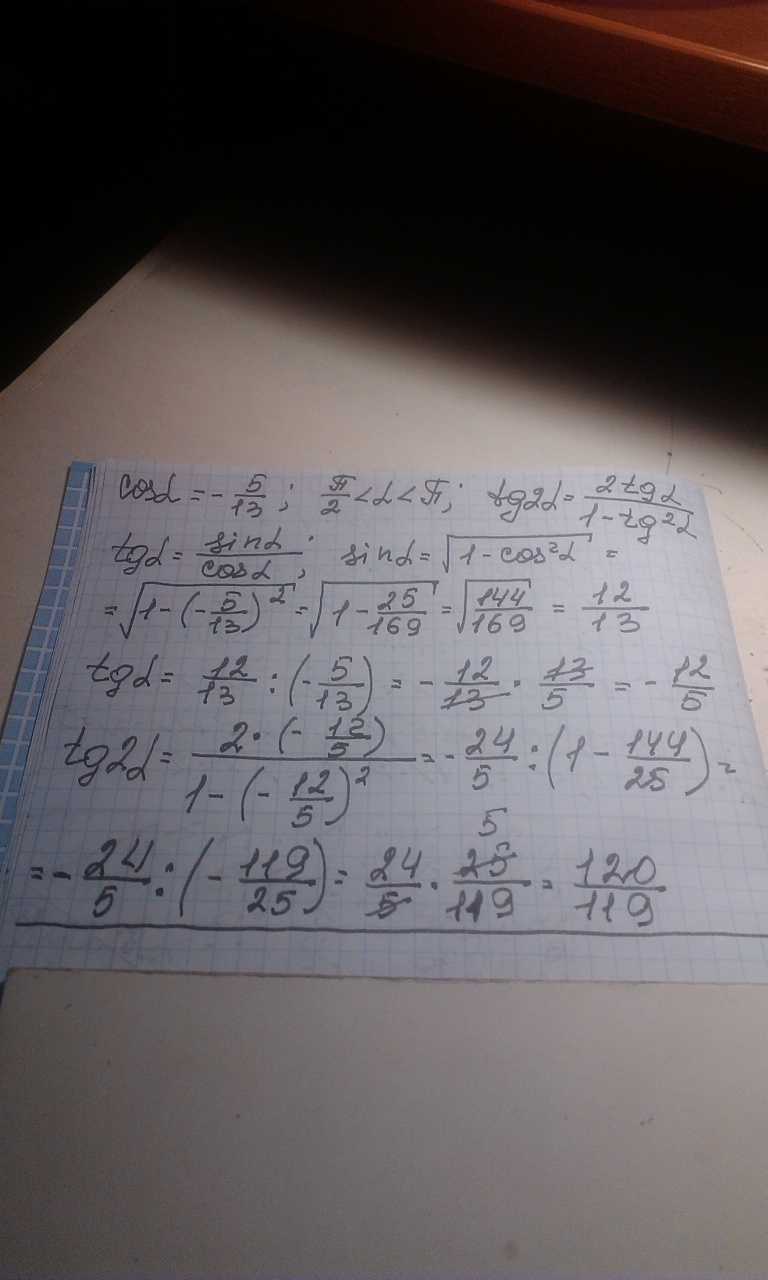 cosα = - 5/13; π/2 < α < π; tg2α = 2tgα/(1 - tg²α)
tgα = sinα/cosα; sinα = √(1 - cos²α) =
= √(1 - (-5/13)²) = √(1 - 25/169) = √(144/169) = 12/13
tgα = 12/13 : (-5/13) = - 12/13 · 13/5 = - 12/5
tg2α = 2·(-12/5)/(1 - (-12/5)²) = - 24/5 : (1 - 144/25) =
5
= - 24/5 : (-119/25) = 24/5 · 25/119 = 120/119